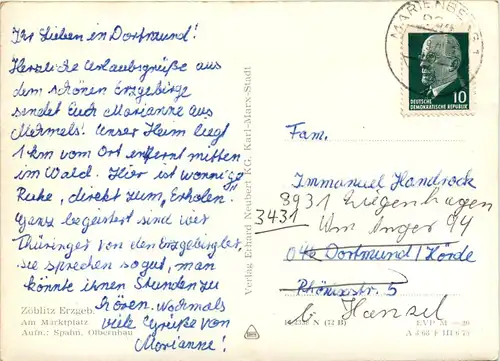 Ihr Lieben in Dortmund!
Herzliche Urlaubsgrüße aus
dem schönen Erzgebirge
sendet Euch Marianne aus
Mehmels. Unser Heim liegt
1 km vom Ort entfernt mitten
im Wald. Hier ist wonnige
Ruhe, direkt zum "Erholen".
Ganz begeistert sind wir
Thüringer von den Erzgebirglern,
sie sprechen so gut, man
könnte ihnen Stundenzu
hören. Nochmals
viele Grüße von
Marianne!
Zöblitz Erzgeb.
Am Marktplatz
Aufn.: Spahn, Olbernhau
Verlag Erhard Neubert KG, Karl-Marx-Stadt
MARIENBERG 1
10
DEUTSCHE
DEMOKRATISCHE REPUBLIK
Fam.
Immanuel Handrock
8931 Ziegenhagen
3431
Am Anger 94
046 Dortmund/Hörde
Rhönixstr. 5
b. Hänsel
N (72 B)
EVP M
A J 68 F III 6 75